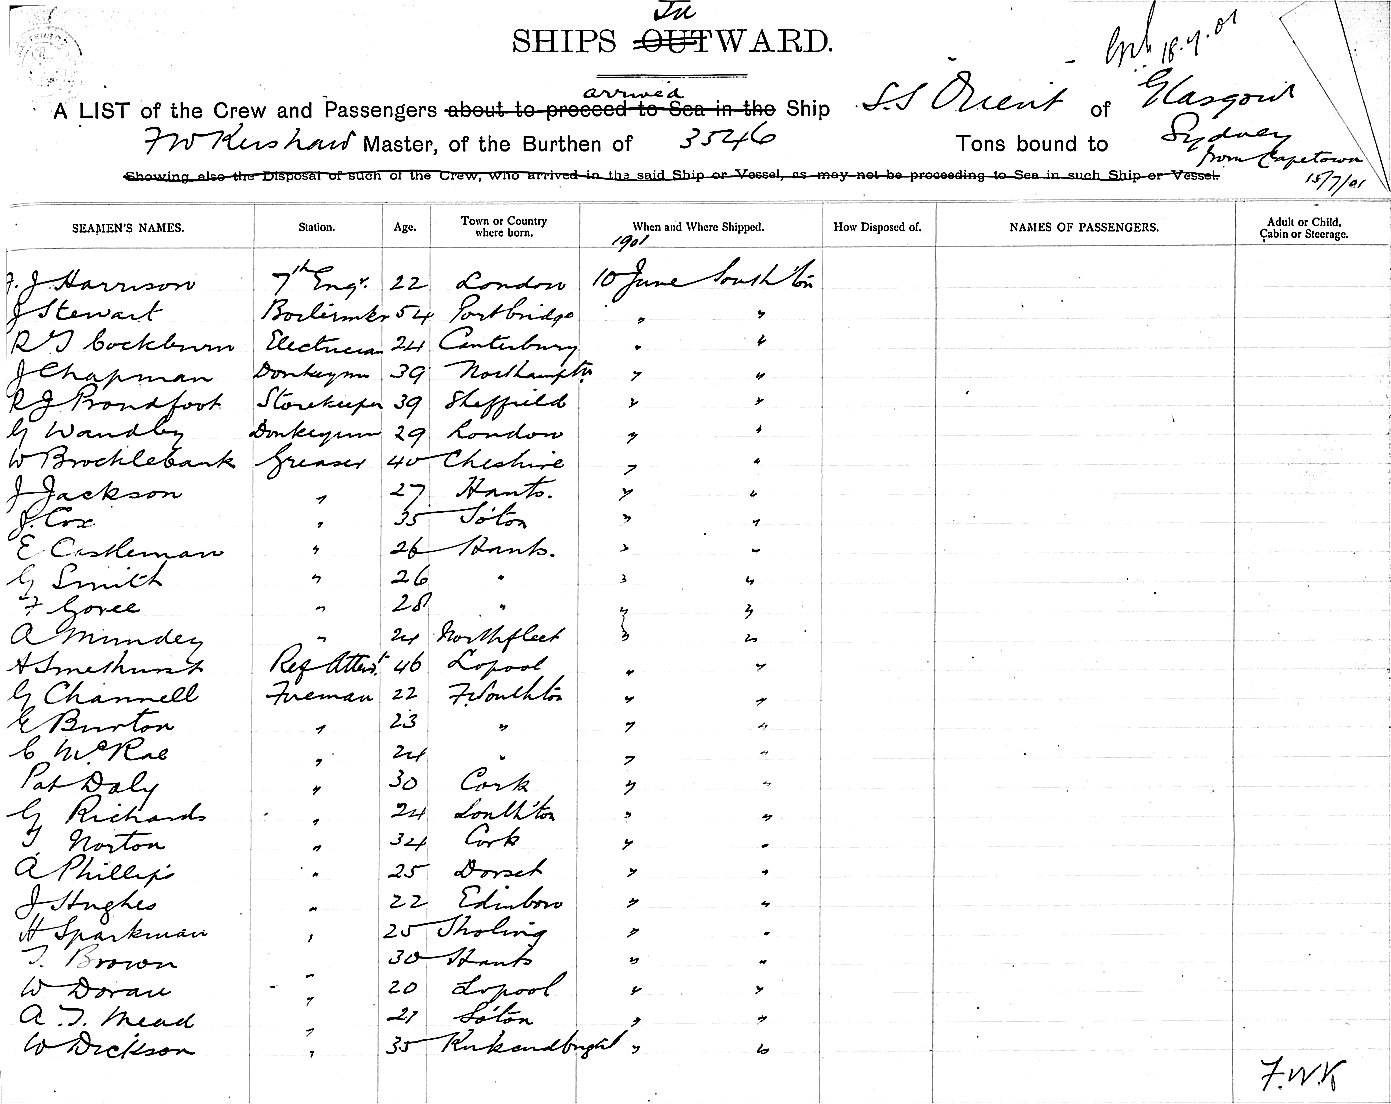 In
SHIPS OUTWARD.
18.7.01
arrived
A LIST of the Crew and Passengers about to proceed to Sea in the Ship S.S Orient of Glasgow
F W Kershaw Master, of the Burthen of 3546 Tons bound to Sydney
from Capetown
Showing also the Disposal of such of the Crew, who arrived in the said Ship or Vessel, as may not be proceeding to Sea in such Ship or Vessel.
15/7/01
SEAMEN'S NAMES. Station. Age. Town or Country where born. When and Where Shipped. How Disposed of. NAMES OF PASSENGERS. Adult or Child, Cabin or Steerage.
1901
F. J Harrison 7th Engr. 22 London 10 June South'ton
J Stewart Boilermkr 54 Portbridge " "
R T Cockburn Electrician 24 Canterbury " "
J Chapman Donkeymn 39 Northampton " "
R J Proudfoot Storekeeper 39 Sheffield " "
G Wandby Donkeymn 29 London " "
W Brocklebank Greaser 40 Cheshire " "
J Jackson " 27 Hants. " "
J. Cox " 35 So'ton " "
E Castleman " 26 Hants. " "
G Smith " 26 " " "
F Goree " 28 " " "
A Mundey " 24 Northfleet " "
H Smethurst Ref Attend.t 46 L'pool " "
G Channell Fireman 22 F. South'ton " "
E Burton " 23 " " "
C McRae " 24 " " "
Pat Daly " 30 Cork " "
G Richards " 24 South'ton " "
T. Norton " 34 Cork " "
A Phillips " 25 Dorset " "
J Hughes " 22 Edinboro " "
H Sparkman " 25 Sholing " "
T. Brown " 30 Hants " "
W Doran " 20 L'pool " "
A. T. Mead " 21 So'ton " "
W Dickson " 35 Kirkcudbright " "
F.W.K